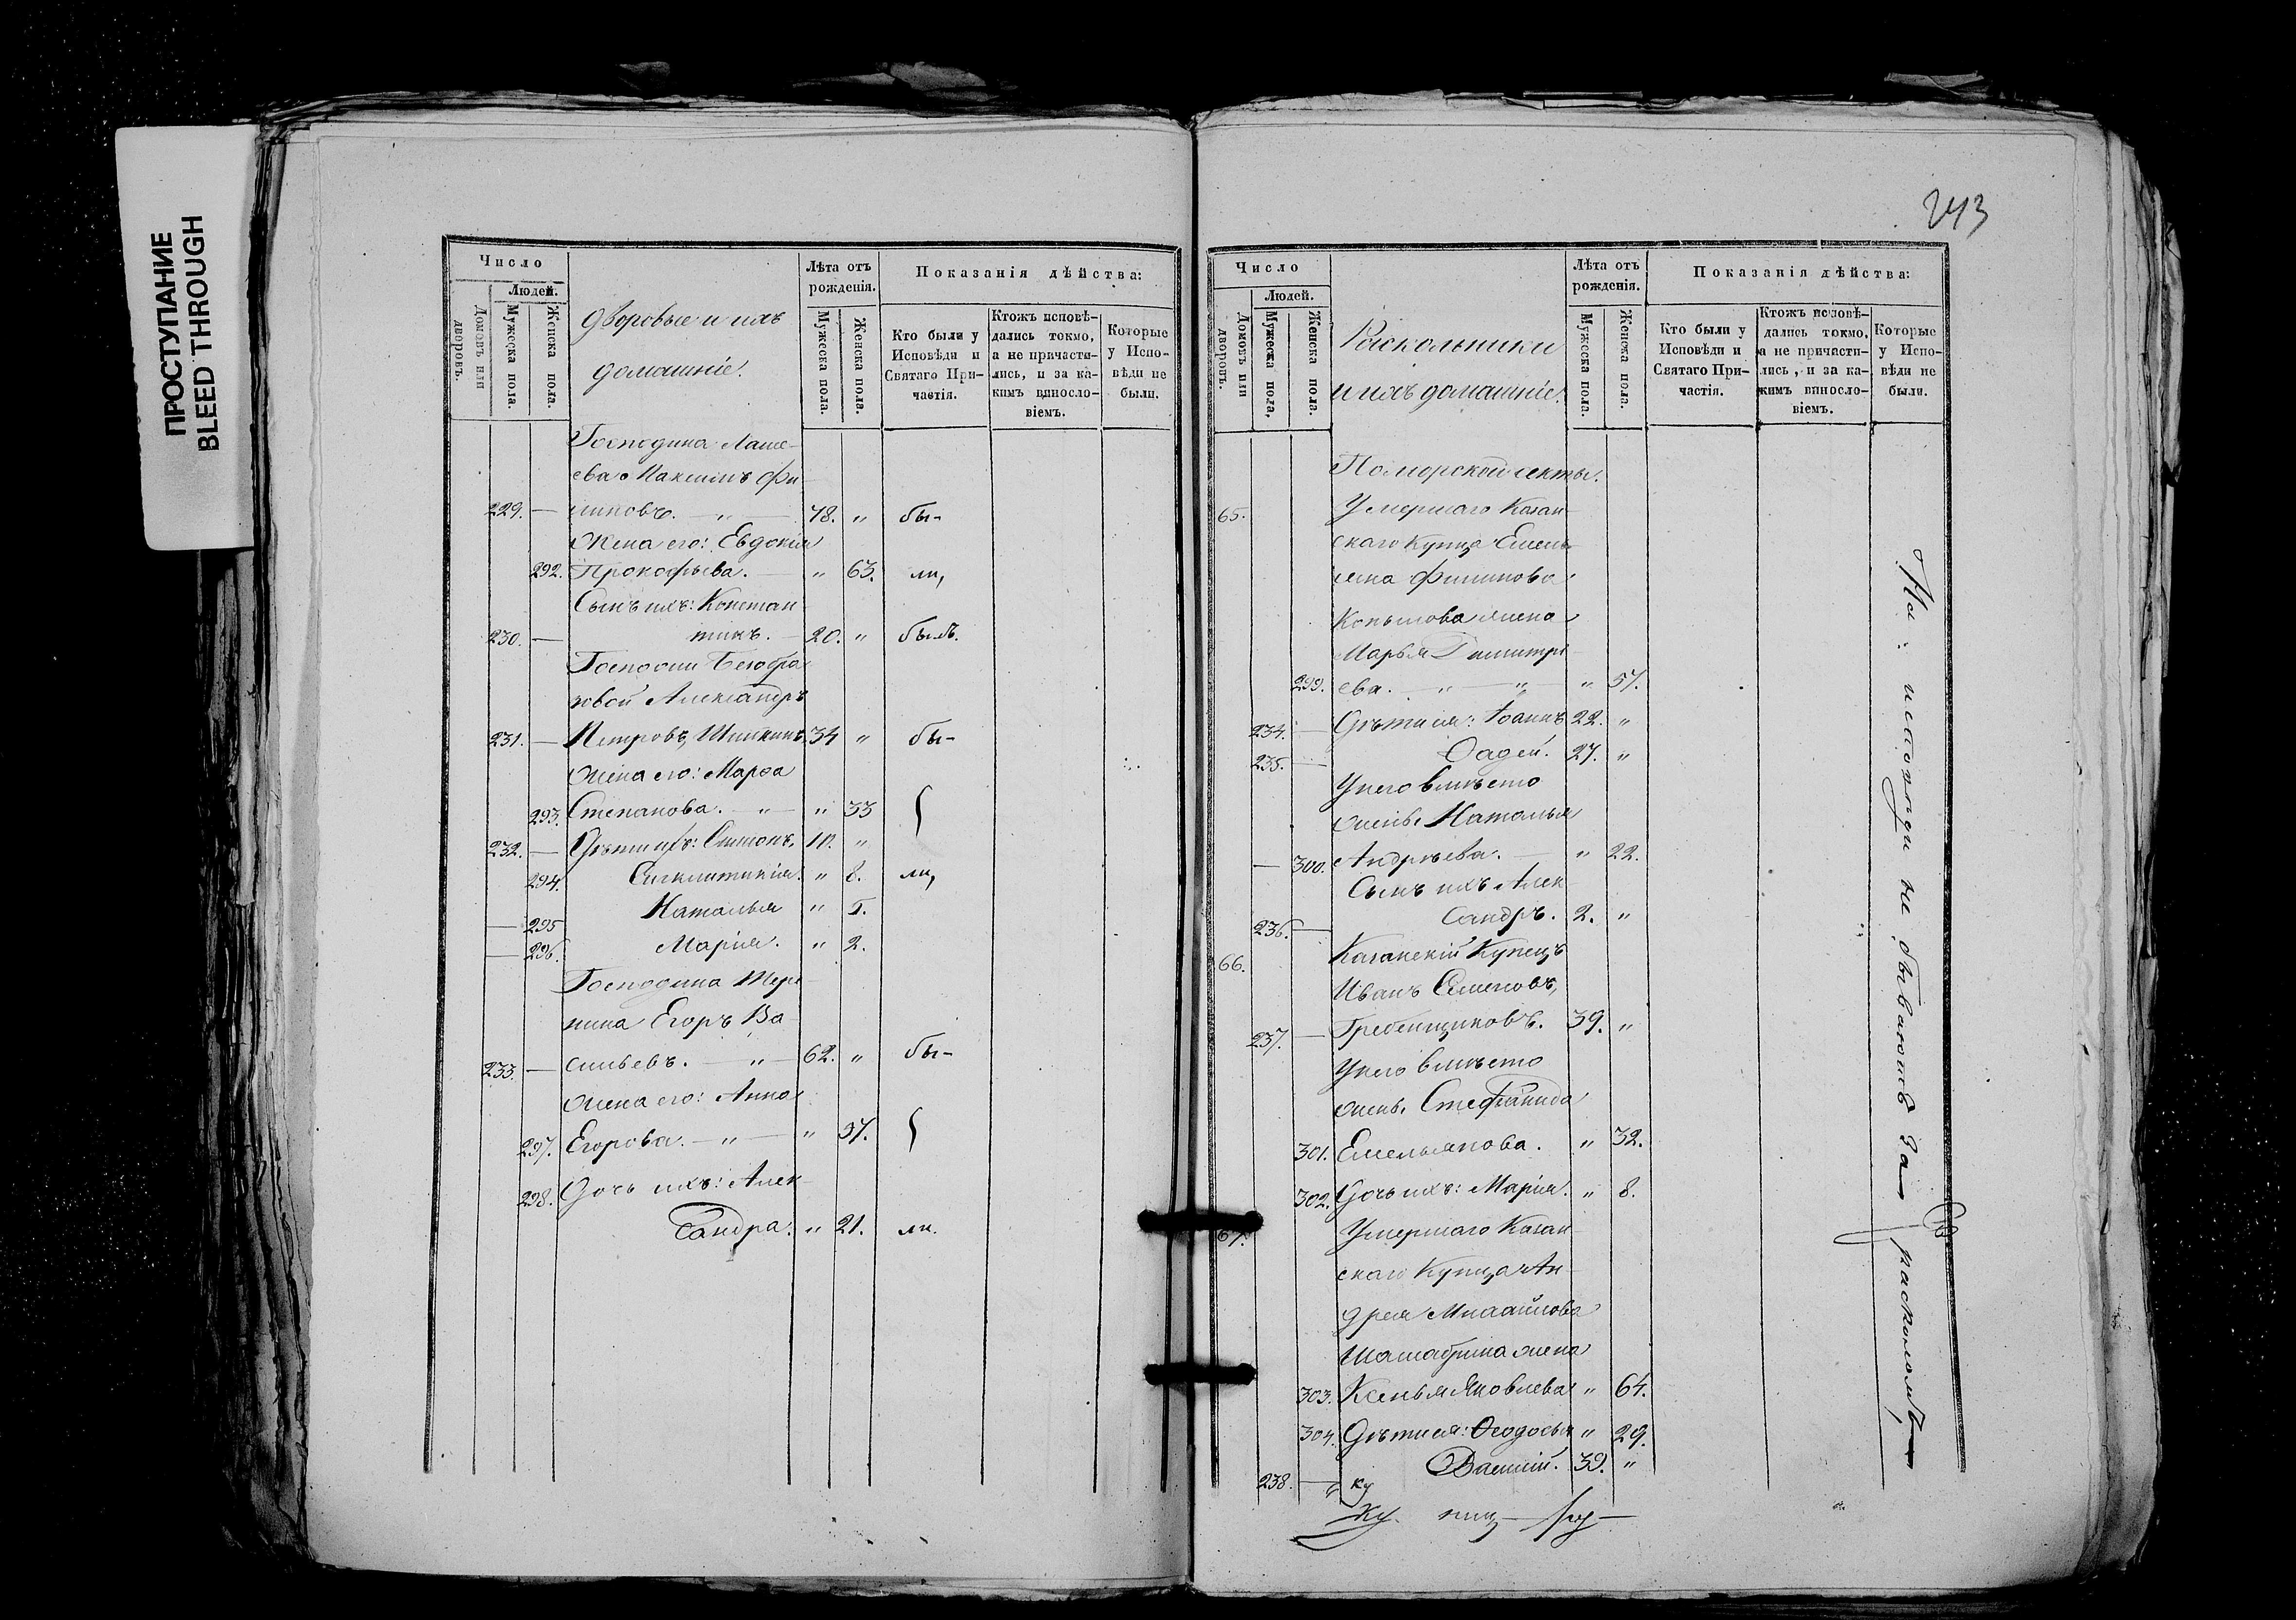 ПРОСТУПАНИЕ
BLEED THROUGH
Число
Людей.
Домовъ или дворовъ.
Мужеска пола.
Женска пола.
Дворовые и ихъ
домашніе.
Лѣта отъ рожденія.
Мужеска пола.
Женска пола.
Показанія дѣйства:
Кто были у Исповѣди и Святаго Причастія.
Ктожъ исповѣдались токмо, а не причастились, и за какимъ винословіемъ.
Которые у Исповѣди не были.
Господина
ева Максимъ Фи
229. — липовъ. — „ — 78. „ бы-
Жена его: Евдокія
292. Прокофьева. — „ 63. ли,
Сынъ ихъ: Констан
230. — тинъ. — 20. „ былъ.
Госпожи
Александръ
231. — Петровъ Шишкинъ 34 „ бы-
Жена его: Марѳа
293. Степанова. — „ — „ 33
232. — Дѣти ихъ: Симонъ. 10. „
294. Синклитикія. „ 8. ли,
— 295 Наталья „ 5.
— 296. Марія. „ 2.
Господина
нина Егоръ Ва
233. — сильевъ. — „ — 62. „ бы-
Жена его: Анна
297. Егорова. — „ — „ 37.
298. Дочь ихъ: Алек
сандра. „ 21. ли.
243
Число
Людей.
Домовъ или дворовъ.
Мужеска пола,
Женска пола.
Раскольники
и ихъ домашніе.
Лѣта отъ рожденія.
Мужеска пола.
Женска пола.
Показанія дѣйства:
Кто были у Исповѣди и Святаго Причастія.
Ктожъ исповѣдались токмо, а не причастились, и за какимъ винословіемъ.
Которые у Исповѣди не были.
Поморской секты.
65. Умершаго Казан
скаго Купца Емель
яна Филипова
Копылова жена
Марья Димитрі
299. ева. — „ — „ — „ 57.
234. — Дѣти ея: Іоаннъ 22. „
235. — Ѳадей. 27. „
У него вмѣсто
жены Наталья
— 300. Андрѣева. — „ 22.
Сынъ ихъ Алек
236. — сандръ. 2. „
66. Казанскій Купецъ
Иванъ Семеновъ,
237. — Гребенщиковъ. 39. „
У него вмѣсто
жены Стефанида
301. Емельянова. „ 32.
302. Дочь ихъ: Марія. „ 8.
67. Умершаго Казан
скаго Купца Ан
дрея Михайлова
жена
303. Ксенья Яковлева „ 64.
304. Дѣти ея: Ѳеодосья „ 29.
238. — Василій. 39. „
На исповѣди не бываютъ за расколомъ